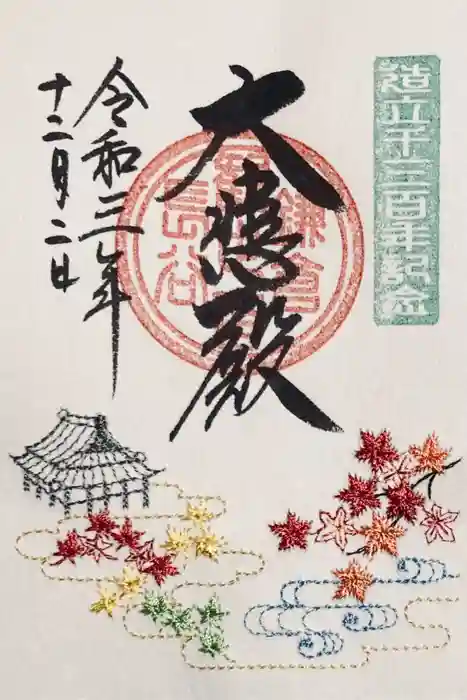 造立千三百年紀念
大悲殿
鎌倉
長谷
令和三年
十二月二日